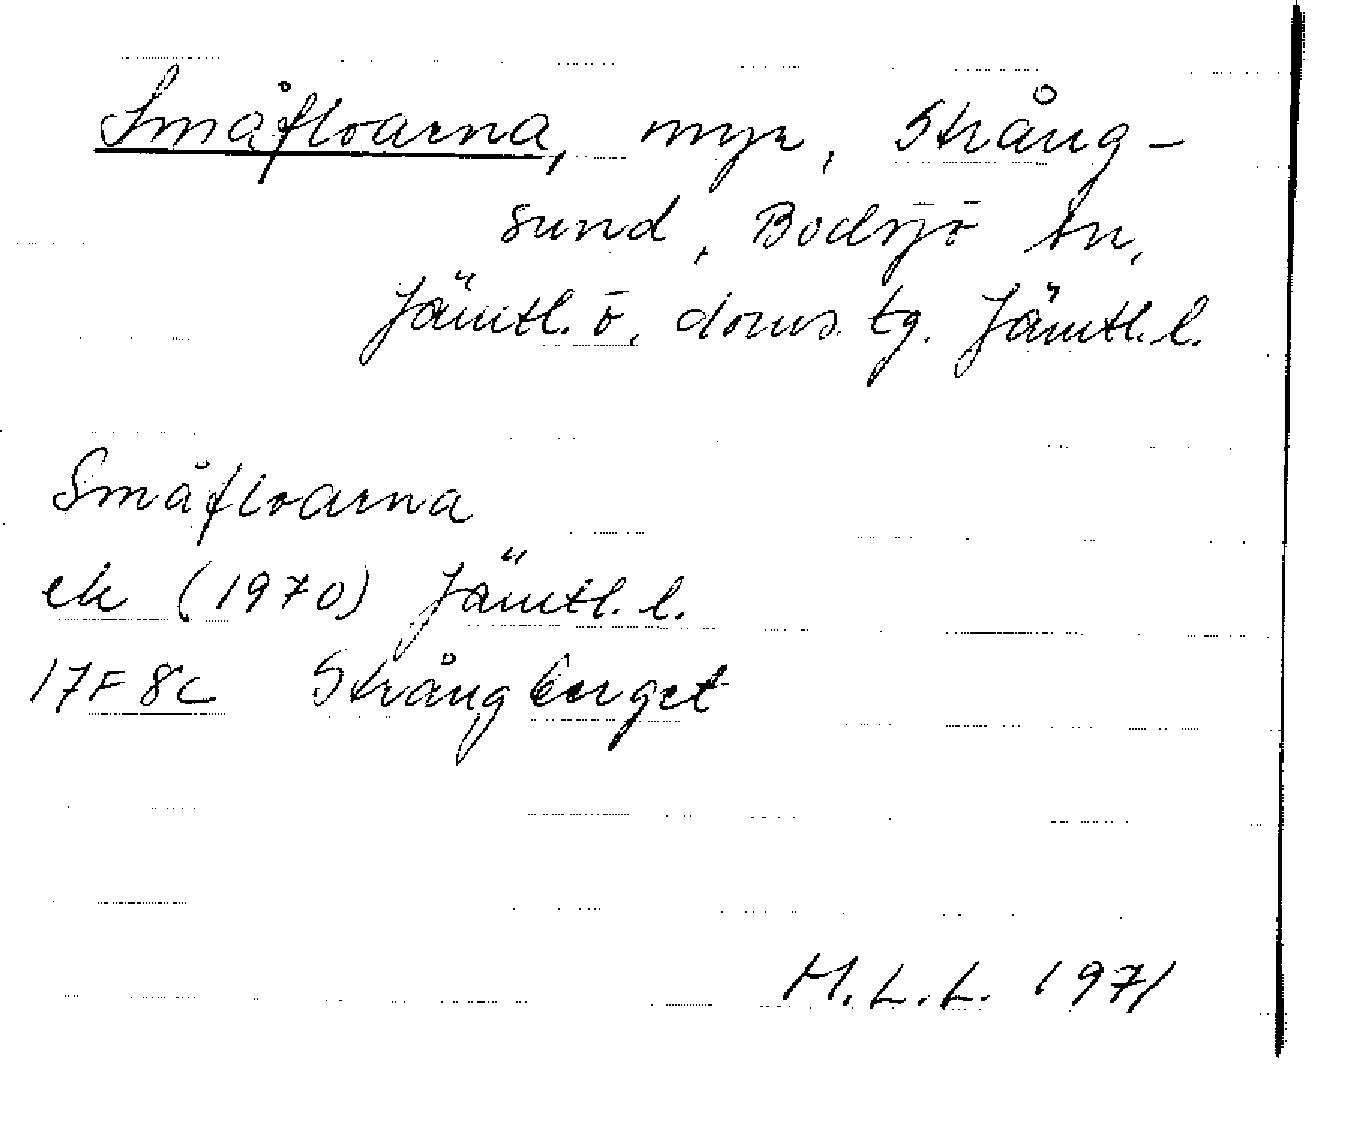 Småfloarna, myr, Strång-
sund, Bodsjö sn,
Jämtl. ö. doms. tg. Jämtl. l.
Småfloarna
ek (1970) Jämtl. l.
17F 8c Strångberget
M.L.L. 1971